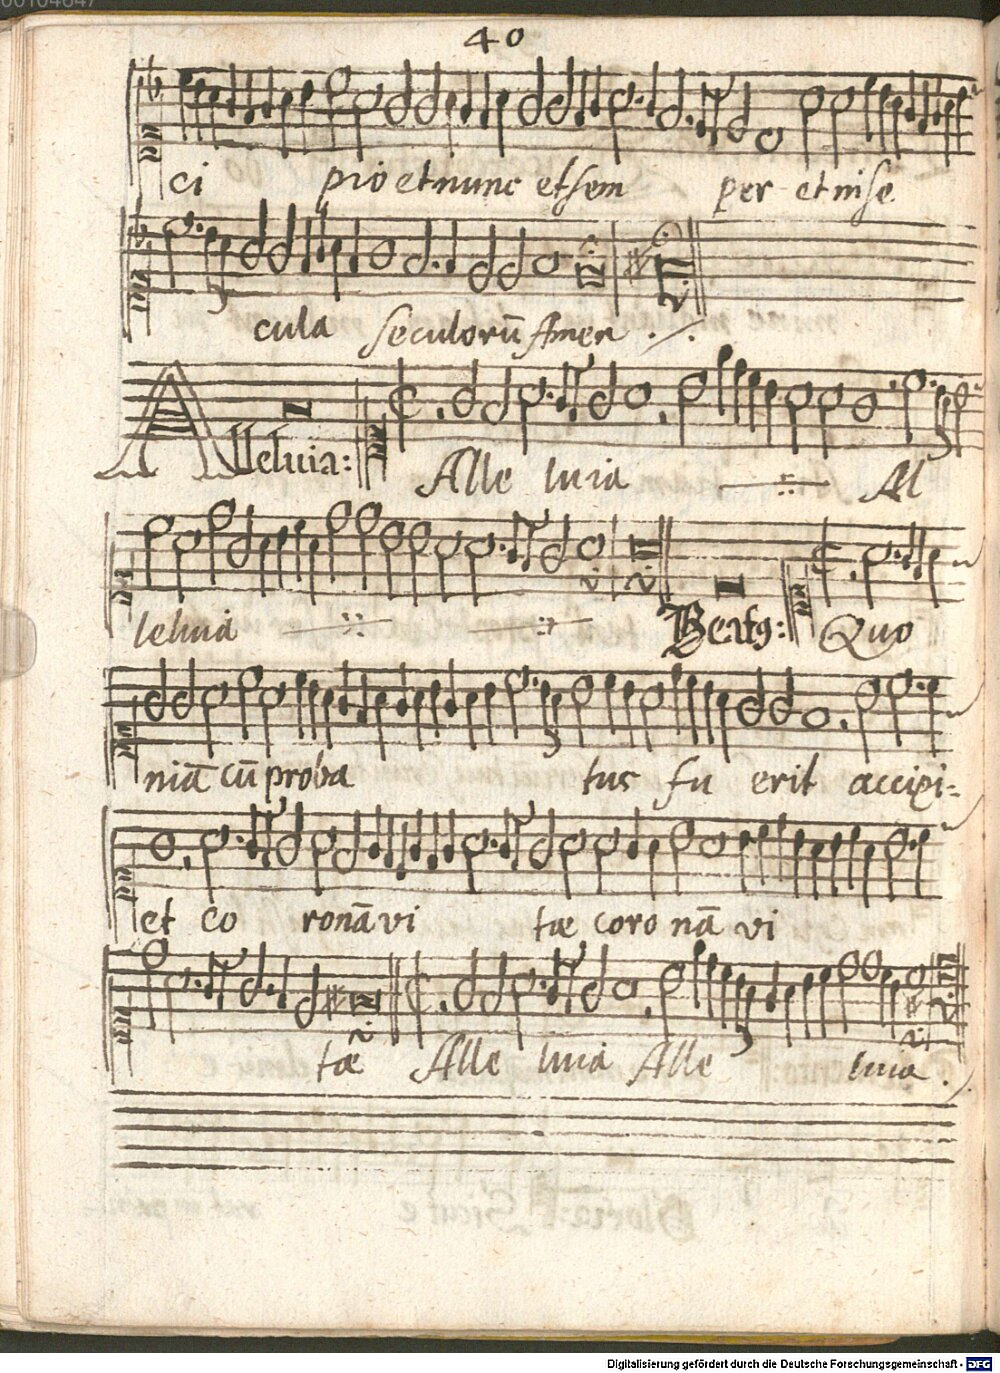 40
ci pro et nunc et sem per et in se
cula seculorū Amen ./.
Alleluia: Alle luia Al
leluia Beatꝯ: Quo
niā cū proba tus fu erit accipi=
et co ronā vi tæ coro nā vi
tæ Alle luia Alle luia.
Digitalisierung gefördert durch die Deutsche Forschungsgemeinschaft - DFG